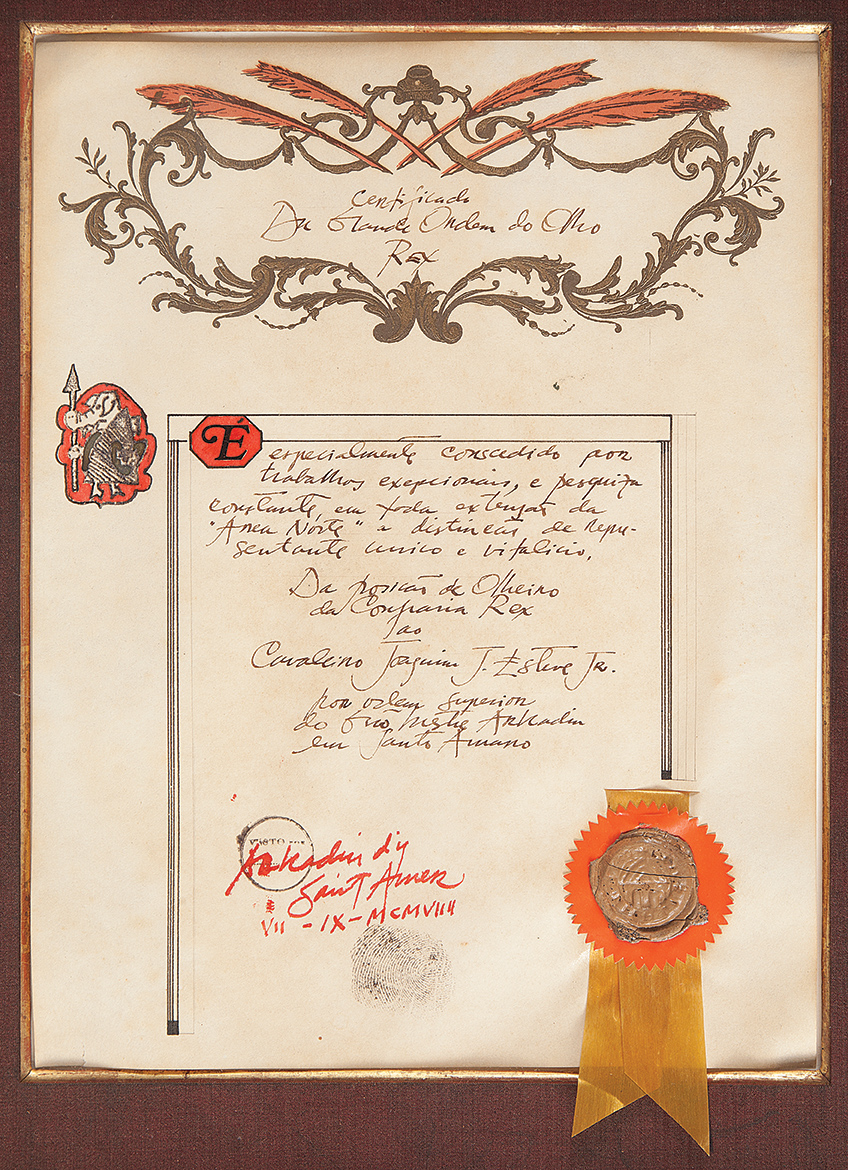 Certificado
Da Grande Ordem do Olho
Rex
É especialmente consedido por
trabalhos exepcionais, e pesquiza
constante, em toda extenção da
"Area Norte" a distincão de repre-
sentante unico e vitalicio.
Da posicão de Olheiro
da Confraria Rex
ao
Cavaleiro Joaquim J. Esteve Jr.
por ordem superior
do Grão Mestre Arkadin
em Santo Amaro
VISTO
Arkadin d'y
Saint Amer
VII - IX - MCMVIII